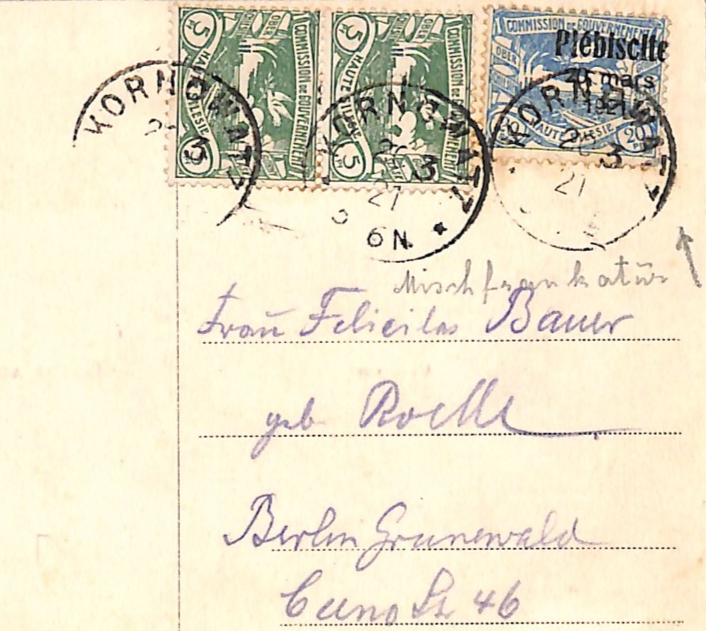 COMMISSION DE GOUVERNEMENT
HAUTE SILESIE
5 5
COMMISSION DE GOUVERNEMENT
HAUTE SILESIE
5 5
COMMISSION DE GOUVERNEMENT
OBER
HAUTE SILESIE
20
Plébiscite
20 mars
1921
KORNOWATZ
3
KORNOWATZ
3
21
6N *
KORNOWATZ
3
21
Mischfrankatur
Frau Felicitas Bauer
geb.
Berlin Grunewald
Cuno Str 46